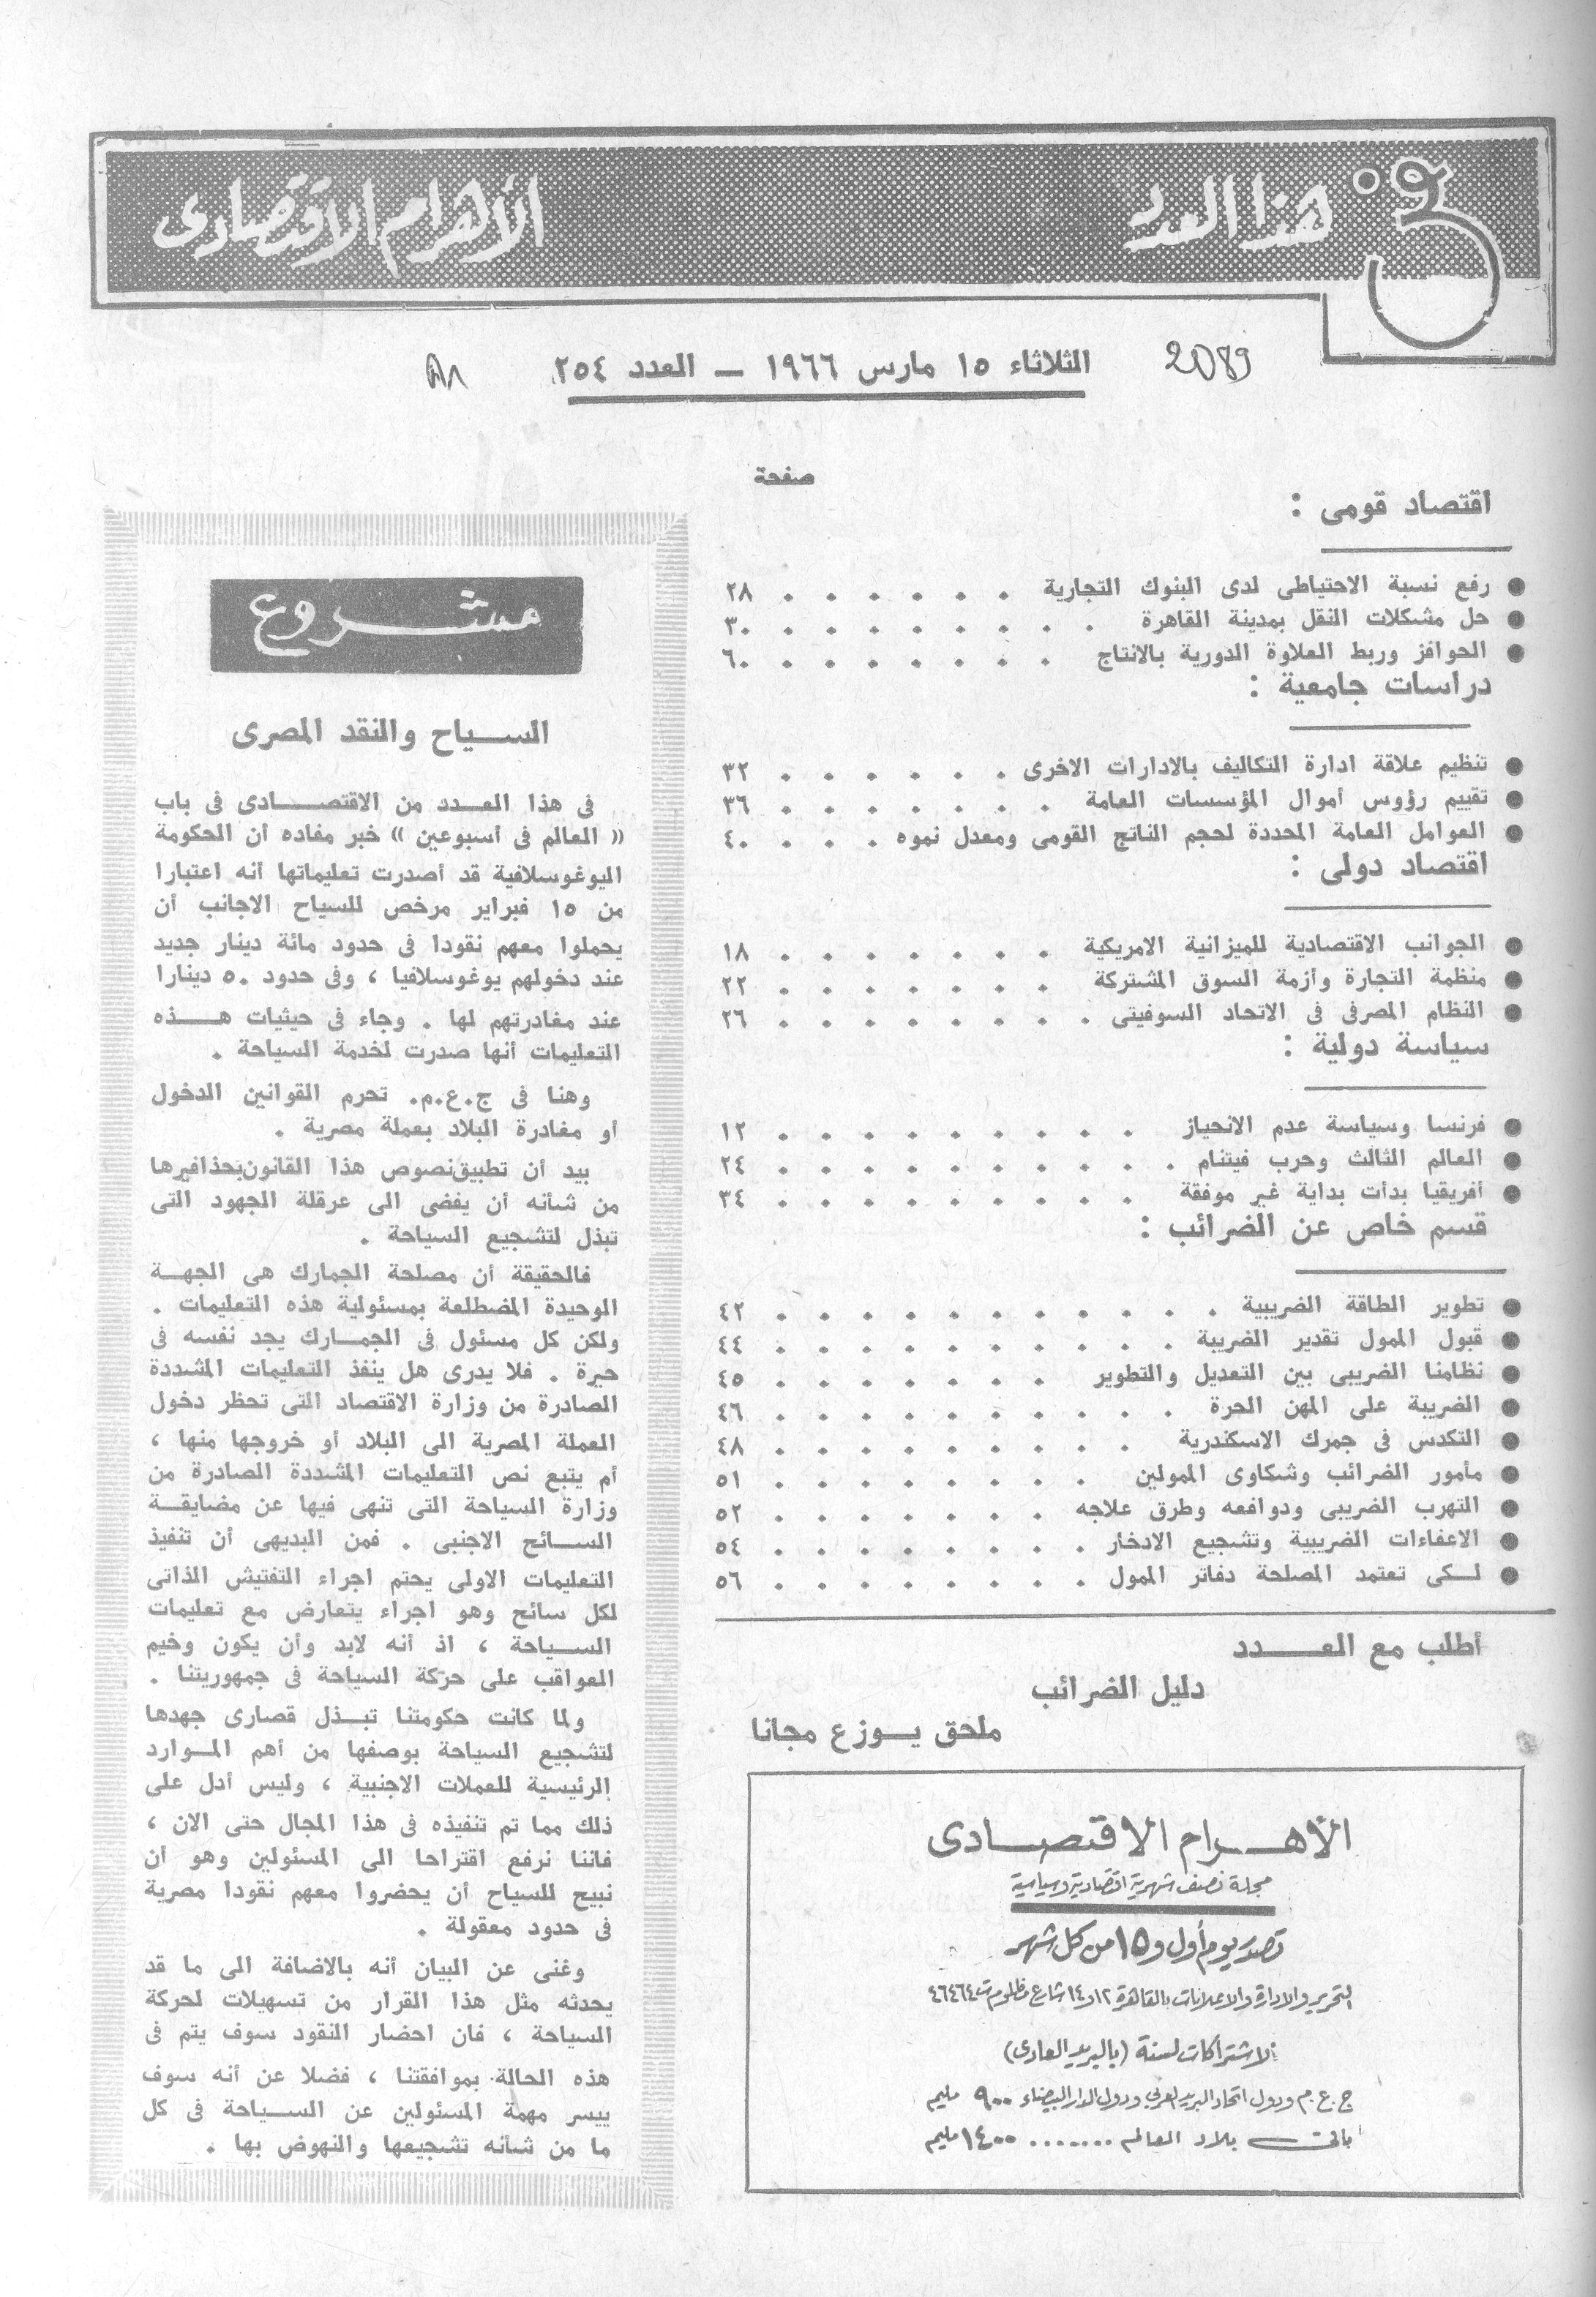 في هذا العدد
الأهرام الاقتصادى
2089
الثلاثاء ١٥ مارس ١٩٦٦ — العدد ٢٥٤
صفحة
اقتصاد قومى :
● رفع نسبة الاحتياطى لدى البنوك التجارية . . . . . . ٢٨
● حل مشكلات النقل بمدينة القاهرة . . . . . . . . ٣٠
● الحوافز وربط العلاوة الدورية بالانتاج . . . . . . . ٦٠
دراسات جامعية :
● تنظيم علاقة ادارة التكاليف بالادارات الاخرى . . . . . . ٣٢
● تقييم رؤوس أموال المؤسسات العامة . . . . . . . ٣٦
● العوامل العامة المحددة لحجم الناتج القومى ومعدل نموه . . . ٤٠
اقتصاد دولى :
● الجوانب الاقتصادية للميزانية الامريكية . . . . . . . ١٨
● منظمة التجارة وأزمة السوق المشتركة . . . . . . . ٢٢
● النظام المصرفى فى الاتحاد السوفيتى . . . . . . . . ٢٦
سياسة دولية :
● فرنسا وسياسة عدم الانحياز . . . . . . . . . ١٢
● العالم الثالث وحرب فيتنام . . . . . . . . . . ٢٤
● أفريقيا بدأت بداية غير موفقة . . . . . . . . . ٣٤
قسم خاص عن الضرائب :
● تطوير الطاقة الضريبية . . . . . . . . . . . ٤٢
● قبول الممول تقدير الضريبة . . . . . . . . . . ٤٤
● نظامنا الضريبى بين التعديل والتطوير . . . . . . . ٤٥
● الضريبة على المهن الحرة . . . . . . . . . . ٤٦
● التكدس فى جمرك الاسكندرية . . . . . . . . . ٤٨
● مأمور الضرائب وشكاوى الممولين . . . . . . . . ٥١
● التهرب الضريبى ودوافعه وطرق علاجه . . . . . . . ٥٢
● الاعفاءات الضريبية وتشجيع الادخار . . . . . . . . ٥٤
● لـكى تعتمد المصلحة دفاتر الممول . . . . . . . . ٥٦
أطلب مع العـــدد
دليل الضرائب
ملحق يـوزع مجانا
الأهـرام الاقتصـادى
مجلة نصف شهرية اقتصادية وسياسية
تصدر يوم أول و ١٥ من كل شهر
التحرير والادارة والاعلانات بالقاهرة ١٢ و ١٤ شارع مظلوم ت ٤٦٤٦٤
الاشتراكات لسنة (بالبريد العادى)
ج.ع.م ودول اتحاد البريد العربي ودول الدار البيضاء ٩٠٠ مليم
باقى بلاد العالم ........ ١٤٠٠ مليم
مشـروع
الســياح والنقد المصرى
فى هذا العـدد من الاقتصـــادى فى باب
« العالم فى أسبوعين » خبر مفاده أن الحكومة
اليوغوسلافية قد أصدرت تعليماتها أنه اعتبارا
من ١٥ فبراير مرخص للسياح الاجانب أن
يحملوا معهم نقودا فى حدود مائة دينار جديد
عند دخولهم يوغوسلافيا ، وفى حدود ٥٠ دينارا
عند مغادرتهم لها . وجاء فى حيثيات هـــذه
التعليمات أنها صدرت لخدمة السياحة .
وهنا فى ج.ع.م. تحرم القوانين الدخول
أو مغادرة البلاد بعملة مصرية .
بيد أن تطبيق نصوص هذا القانون بحذافيرها
من شأنه أن يفضى الى عرقلة الجهود التى
تبذل لتشجيع السياحة .
فالحقيقة أن مصلحة الجمارك هى الجهـة
الوحيدة المضطلعة بمسئولية هذه التعليمات .
ولكن كل مسئول فى الجمـارك يجد نفسه فى
حيرة . فلا يدرى هل ينفذ التعليمات المشددة
الصادرة من وزارة الاقتصاد التى تحظر دخول
العملة المصرية الى البلاد أو خروجها منها ،
أم يتبع نص التعليمات المشددة الصادرة من
وزارة السياحة التى تنهى فيها عن مضايقـة
السـائح الاجنبى . فمن البديهى أن تنفيذ
التعليمات الاولى يحتم اجراء التفتيش الذاتى
لكل سائح وهو اجراء يتعارض مع تعليمات
السـياحة ، اذ أنه لابد وأن يكون وخيم
العواقب على حركة السياحة فى جمهوريتنا .
ولما كانت حكومتنا تبـذل قصارى جهدها
لتشجيع السياحة بوصفها من أهم المـوارد
الرئيسية للعملات الاجنبية ، وليس أدل على
ذلك مما تم تنفيذه فى هذا المجال حتى الان ،
فاننا نرفع اقتراحا الى المسئولين وهو أن
نبيح للسياح أن يحضروا معهم نقودا مصرية
فى حدود معقولة .
وغنى عن البيان أنه بالاضافة الى ما قد
يحدثه مثل هذا القرار من تسهيلات لحركة
السياحة ، فان احضار النقود سوف يتم فى
هذه الحالة بموافقتنا ، فضلا عن أنه سوف
ييسر مهمة المسئولين عن السـياحة فى كل
ما من شأنه تشجيعها والنهوض بها .